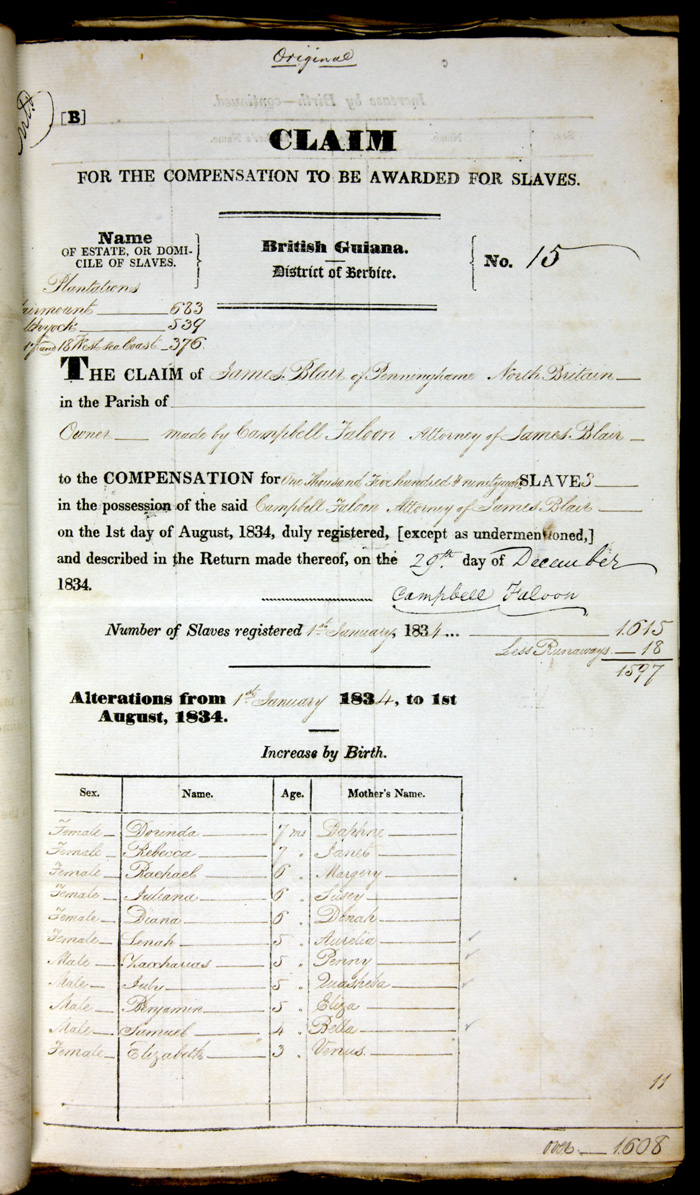 Original
[B]
CLAIM
FOR THE COMPENSATION TO BE AWARDED FOR SLAVES.
Name
OF ESTATE, OR DOMI-
CILE OF SLAVES.
British Guiana.
District of Berbice.
No. 15
Plantations
airmount 683
539
17 and 18 West Sea Coast 376
THE CLAIM of James Blair of Penninghame North Britain
in the Parish of
Owner made by Campbell Faloon Attorney of James Blair
to the COMPENSATION for One Thousand Five hundred & ninety SLAVES
in the possession of the said Campbell Faloon Attorney of James Blair
on the 1st day of August, 1834, duly registered, [except as undermentioned,]
and described in the Return made thereof, on the 29th day of December
1834.
Campbell Faloon
Number of Slaves registered 1st January, 1834 ... 1.615
Less Runaways 18
1597
Alterations from 1st January 1834, to 1st
August, 1834.
Increase by Birth.
Sex. Name. Age. Mother's Name.
Female Dorinda 7 ms Daphne
Female Rebecca 7 " Janet
Female Rachael 6 " Margery
Female Juliana 6 " Susey
Female Diana 6 " Dinah
Female Lenah 5 " Aurelia
Male Zaccharias 5 " Penny
Male July 5 " Quasheba
Male Benjamin 5 " Eliza
Male Samuel 4 " Bella
Female Elizabeth 3 " Venus
11
over 1.608